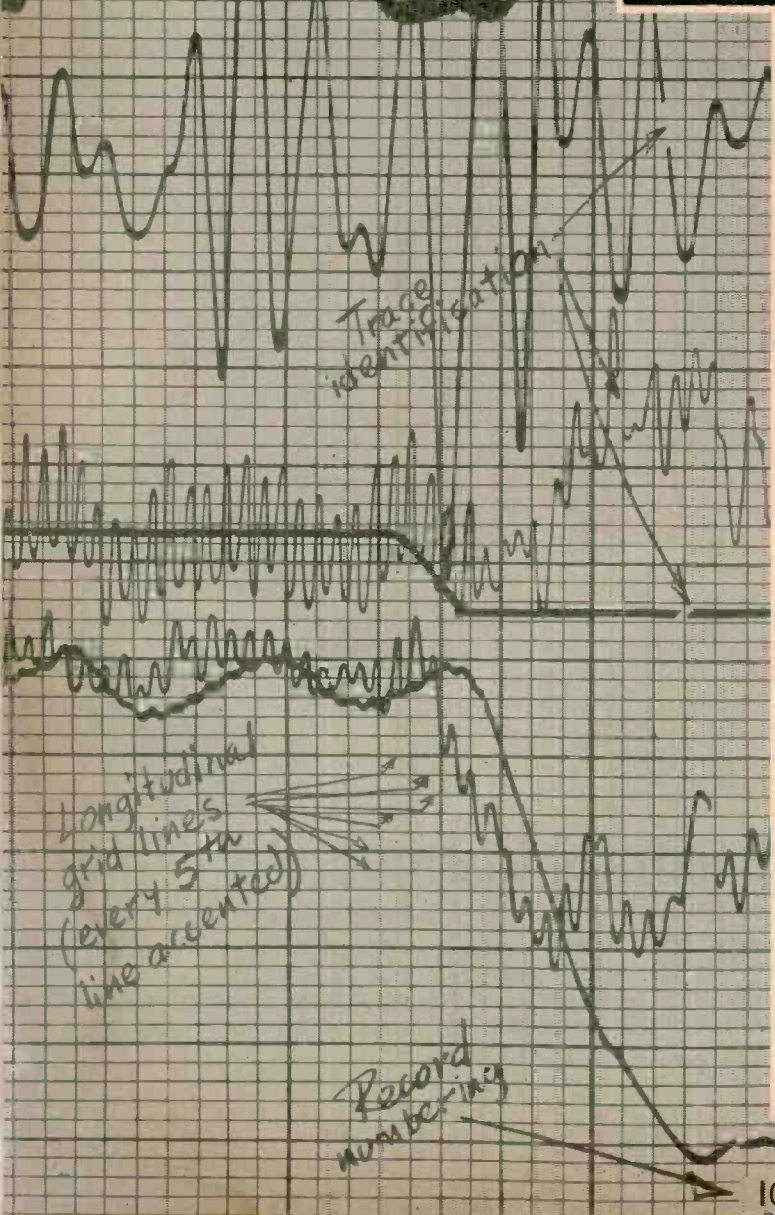 Trace
identification
Longitudinal
grid lines
(every 5th
line accented)
Record
numbering
10